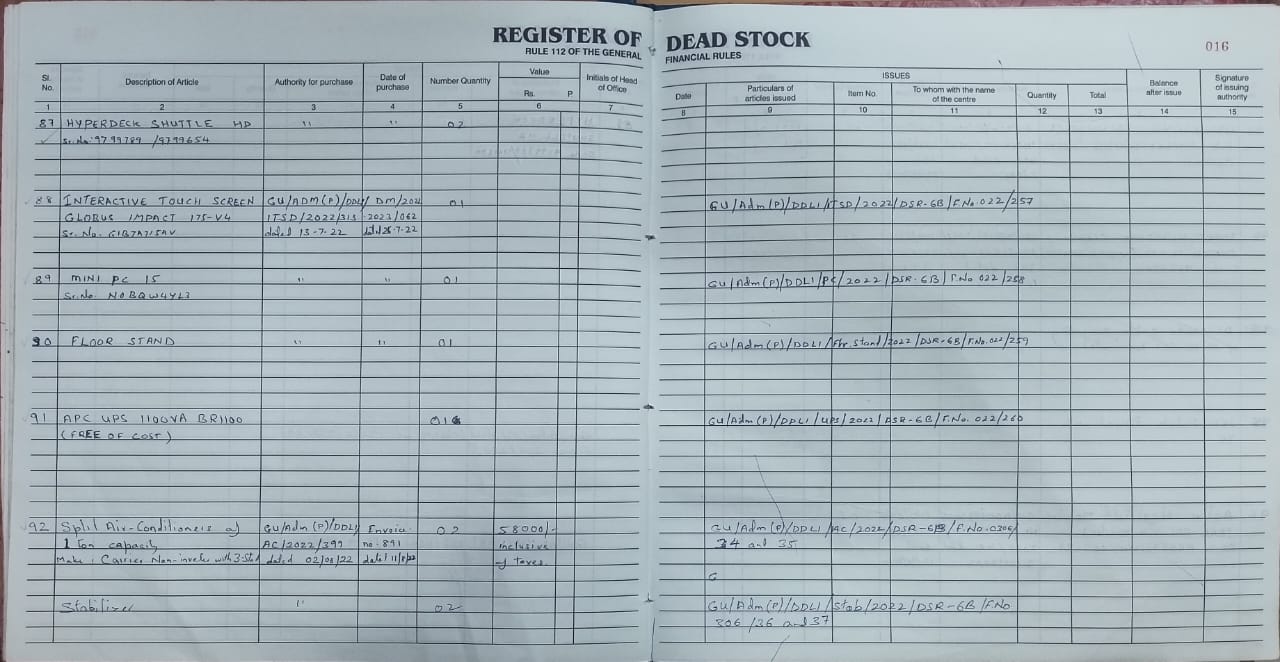 REGISTER OF DEAD STOCK
RULE 112 OF THE GENERAL FINANCIAL RULES
016
Sl. No. Description of Article Authority for purchase Date of purchase Number Quantity Value Rs. P. Initials of Head of Office
ISSUES
Date Particulars of articles issued Item No. To whom with the name of the centre Quantity Total Balance after issue Signature of issuing authority
1 2 3 4 5 6 7 8 9 10 11 12 13 14 15
87 HYPERDECK SHUTTLE HD " " 02
Sr.No: 9799789 /9799654
88 INTERACTIVE TOUCH SCREEN GU/ADM(P)/DDLI/ DM/202 01 GU/Adm(P)/DDLI/ITSD/2022/DSR-6B/F.No.022/257
GLOBUS IMPACT 175-V4 ITSD/2022/313 -2023/062
Sr. No. dated 13-7-22 dated 26-7-22
89 MINI PC 15 " " 01 GU/Adm(P)/DDLI/PC/2022/DSR-6B/F.No 022/258
Sr.No. N0BQW4YL3
90 FLOOR STAND " " 01 GU/Adm(P)/DDLI/Flr.Stand/2022/DSR-6B/F.No.022/259
91 APC UPS 1100VA BR1100 01 GU/Adm(P)/DDLI/UPS/2022/DSR-6B/F.No. 022/260
(FREE OF COST)
92 Split Air-Conditioners of GU/Adm(P)/DDLI/ Invoice 02 58000/- GU/Adm(P)/DDLI/AC/2022/DSR-6B/F.No.0306/
1 Ton capacity AC/2022/399 no. 891 inclusive 34 and 35
Make: Carrier Non-inverter with 3-Star dated 02/08/22 dated 11/8/22 of taxes.
G
Stabilizer " 02 GU/Adm(P)/DDLI/Stab/2022/DSR-6B/F.No
306/36 and 37